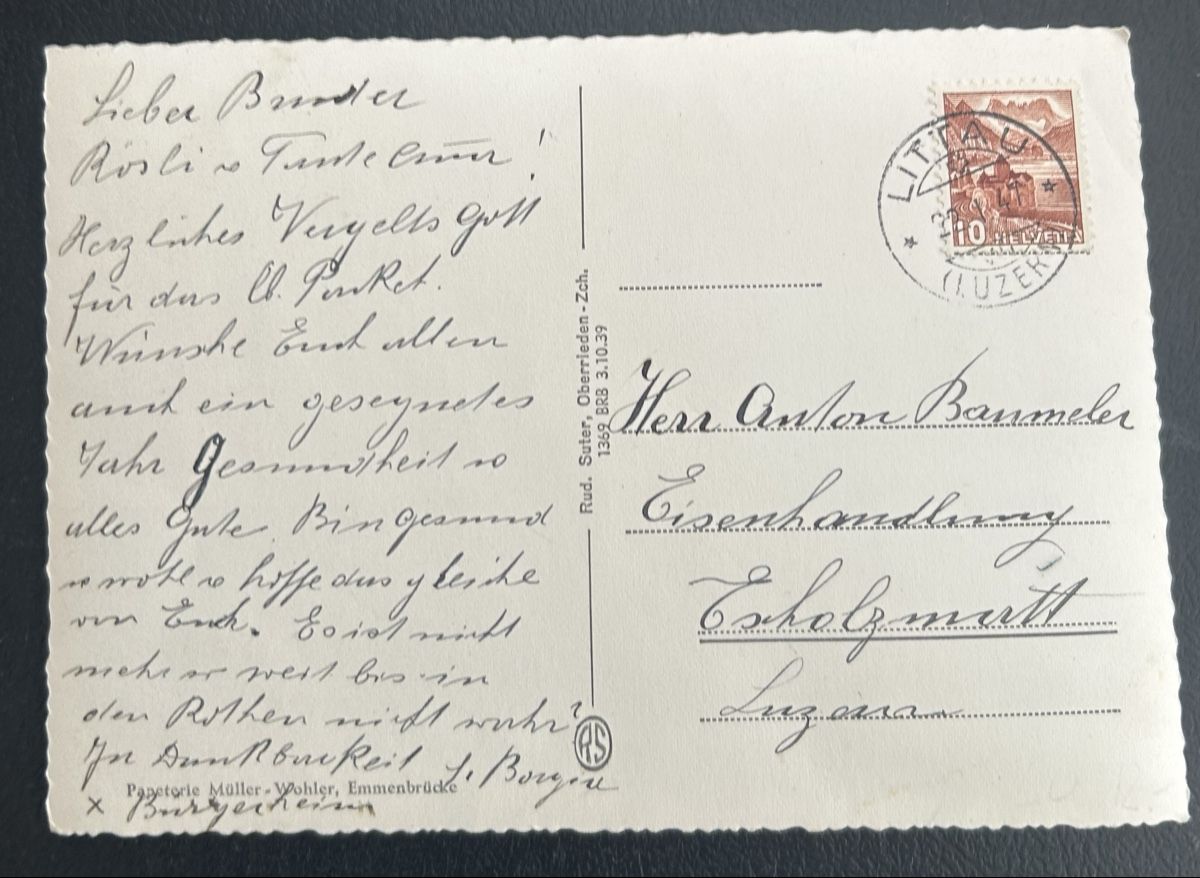 Lieber Bruder
Rösli u Tante
Herzliches Vergelts Gott!
für das lb. Packet.
Wünsche Euch allen
auch ein gesegnetes
Jahr Gesundheit u
alles Gute. Bin gesund
u wohl u hoffe das gleiche
von Euch. Es ist nicht
mehr so weit bis in
den nicht wahr?
In Dankbarkeit
Papeterie Müller-Wohler, Emmenbrücke
x Bürgerheim
Rud. Suter, Oberrieden-Zch.
1369 BRB 3.10.39
RS
LITTAU
(LUZERN)
10 HELVETIA
Herr Anton Baumeler
Eisenhandlung
Escholzmatt
Luzern